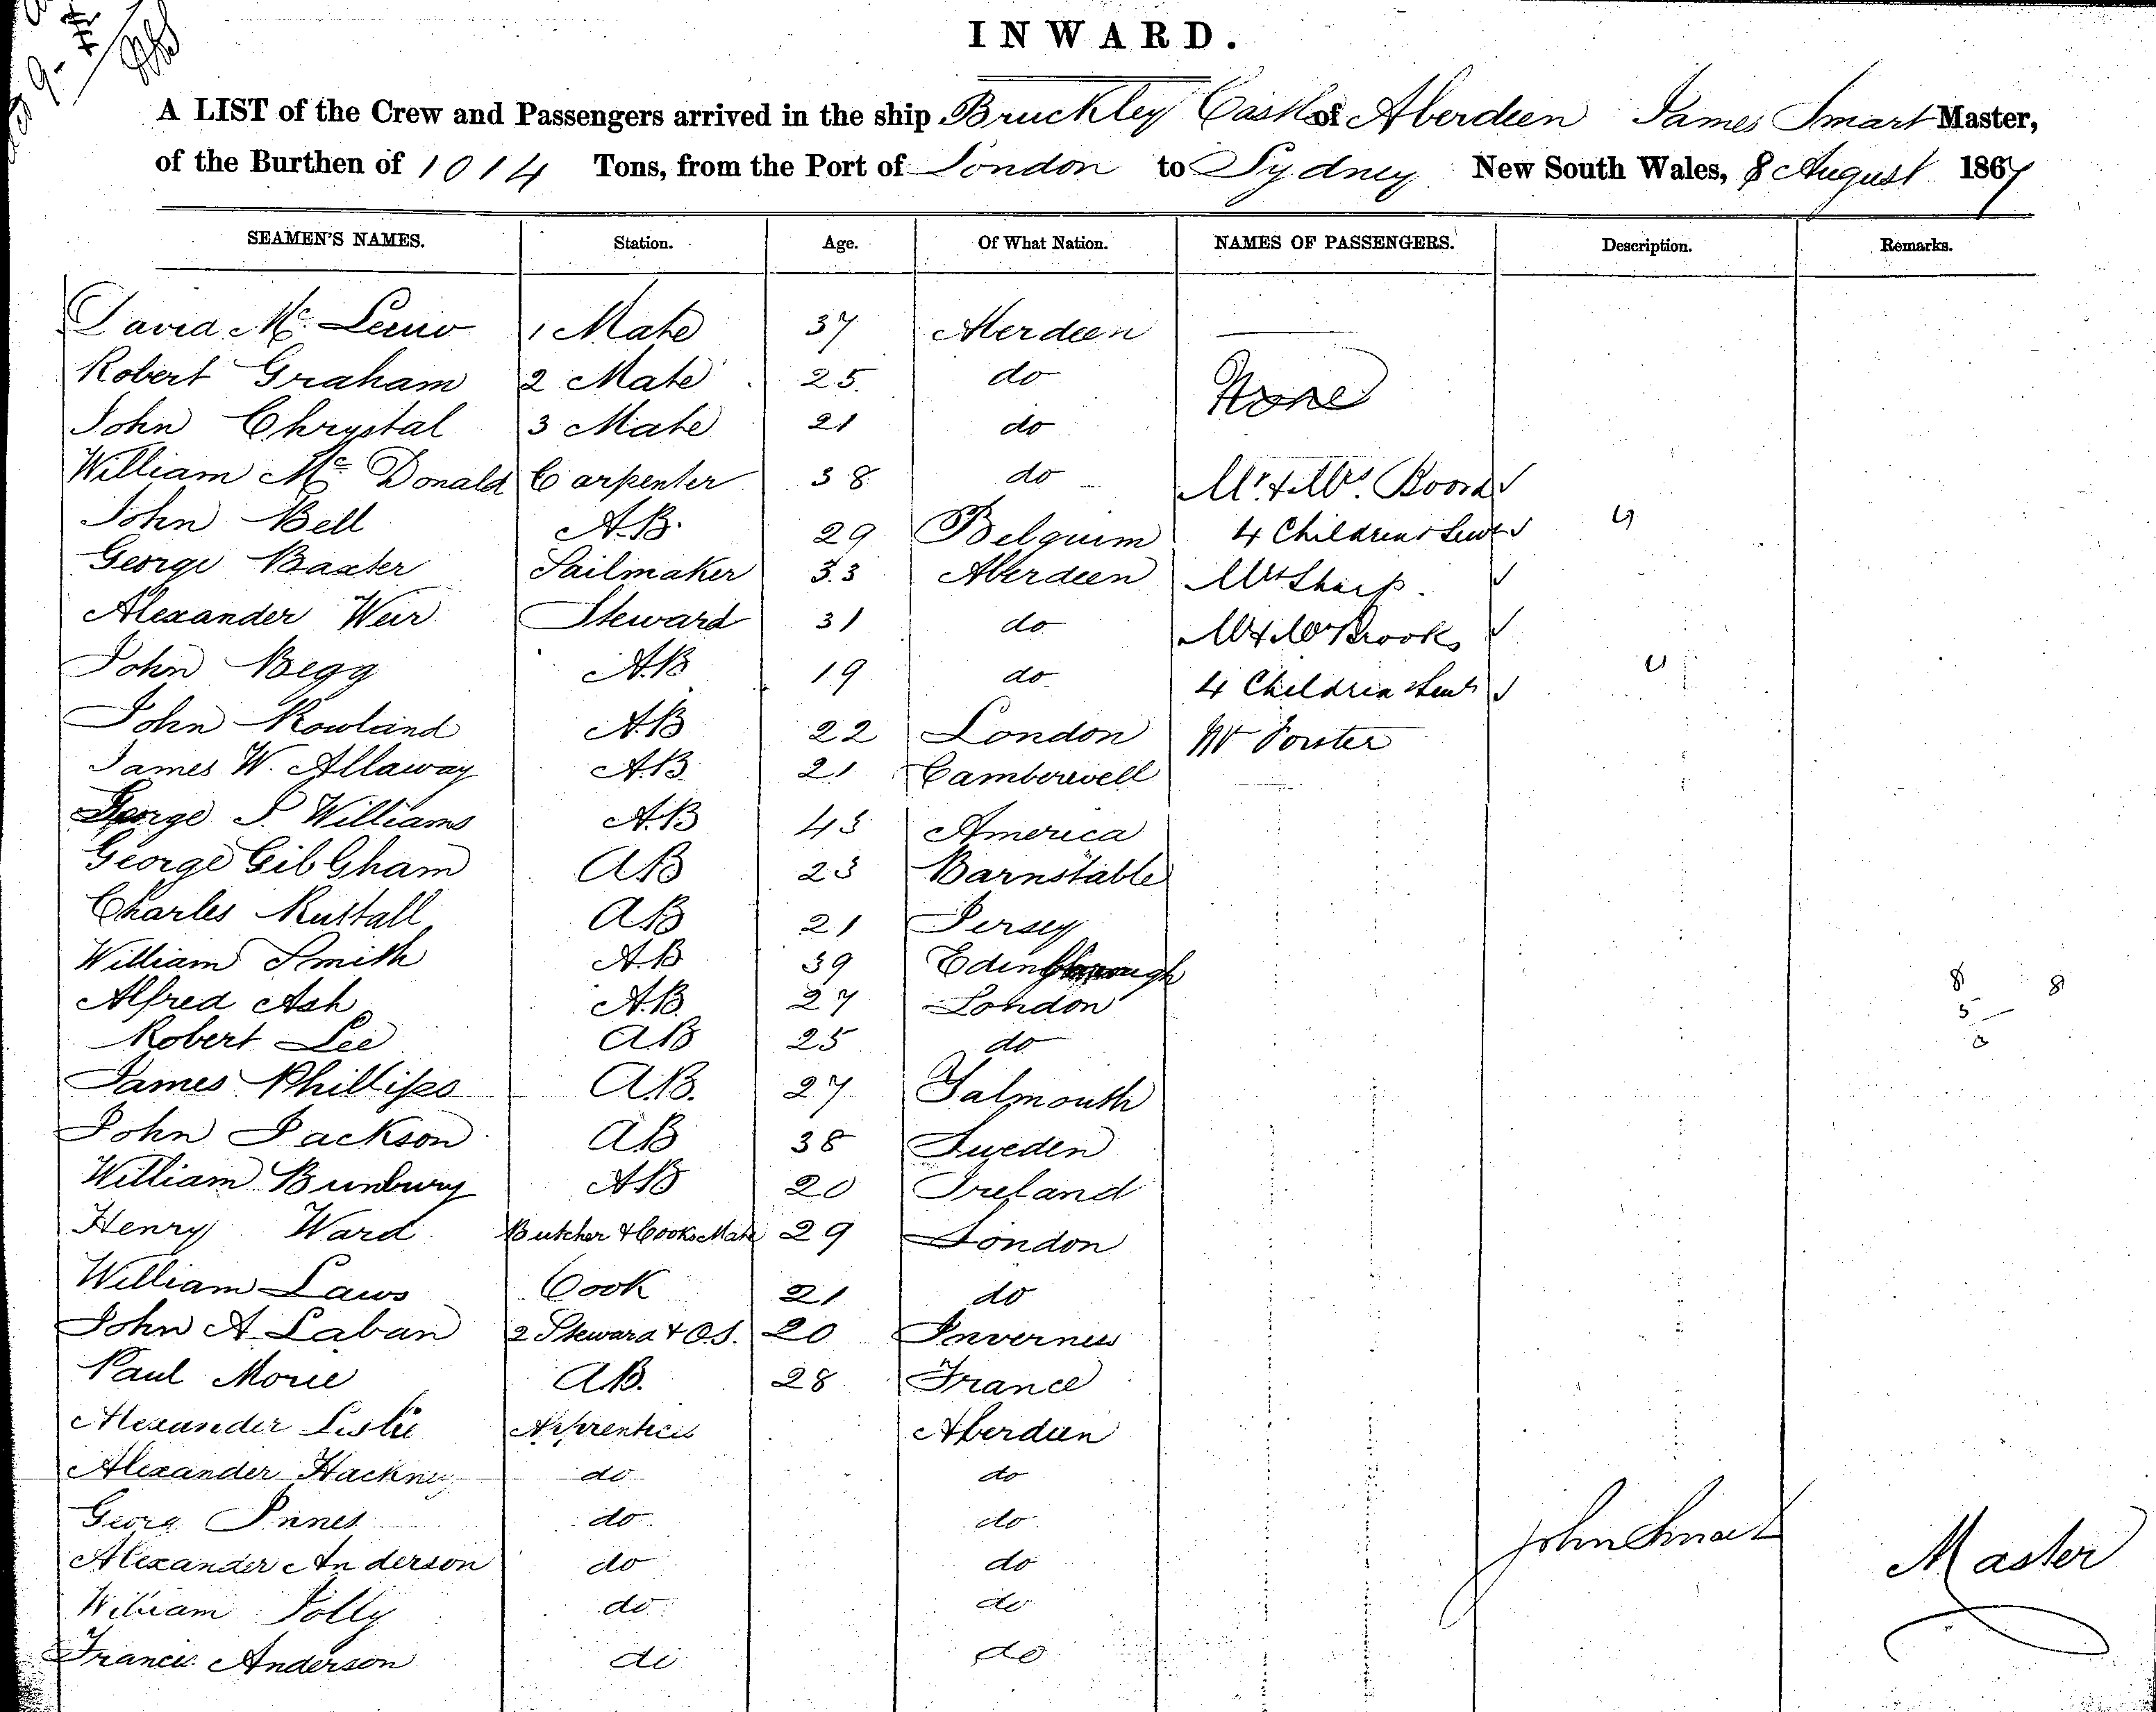 INWARD.
A LIST of the Crew and Passengers arrived in the ship Bruckley Castle of Aberdeen James Smart Master,
of the Burthen of 1014 Tons, from the Port of London to Sydney New South Wales, 8 August 1867
SEAMEN'S NAMES. Station. Age. Of What Nation. NAMES OF PASSENGERS. Description. Remarks.
David Mc 1 Mate 37 Aberdeen
Robert Graham 2 Mate 25 do None
John Chrystal 3 Mate 21 do
William Mc Donald Carpenter 38 do Mr & Mrs
John Bell A.B. 29 Belguim 4 Children &
George Baxter Sailmaker 33 Aberdeen Sharp.
Alexander Weir Steward 31 do Brooks
John Begg A.B 19 do 4 Children &
John Rowland A.B 22 London Mr Forster
James W. Allaway A.B 21 Camberwell
George S. Williams A.B 43 America
George Gib Gham AB 23 Barnstable
Charles Rustall AB 21 Jersey
William Smith A.B 39 8 8
Alfred Ash A.B. 27 London 5
Robert Lee AB 25 do
James Phillips A.B. 27 Falmouth
John Jackson AB 38 Sweden
William Bunbury AB 20 Ireland
Henry Ward Butcher & Cooks Mate 29 London
William Laws Cook 21 do
John A. Laban 2 Steward & O.S. 20 Inverness
Paul A.B. 28 France
Alexander Leslie Apprentices Aberdeen
Alexander Hackney do do
Georg Innes do do
Alexander Anderson do do John Smart Master
William Jolly do do
Francis Anderson do do